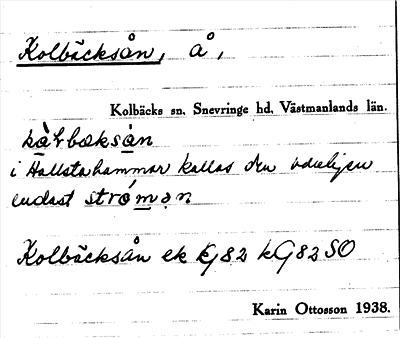 Kolbäcksån, å,
Kolbäcks sn. Snevringe hd. Västmanlands län.
i Hallstahammar kallas den
endast
Kolbäcksån ek G82 kG82SO
Karin Ottosson 1938.